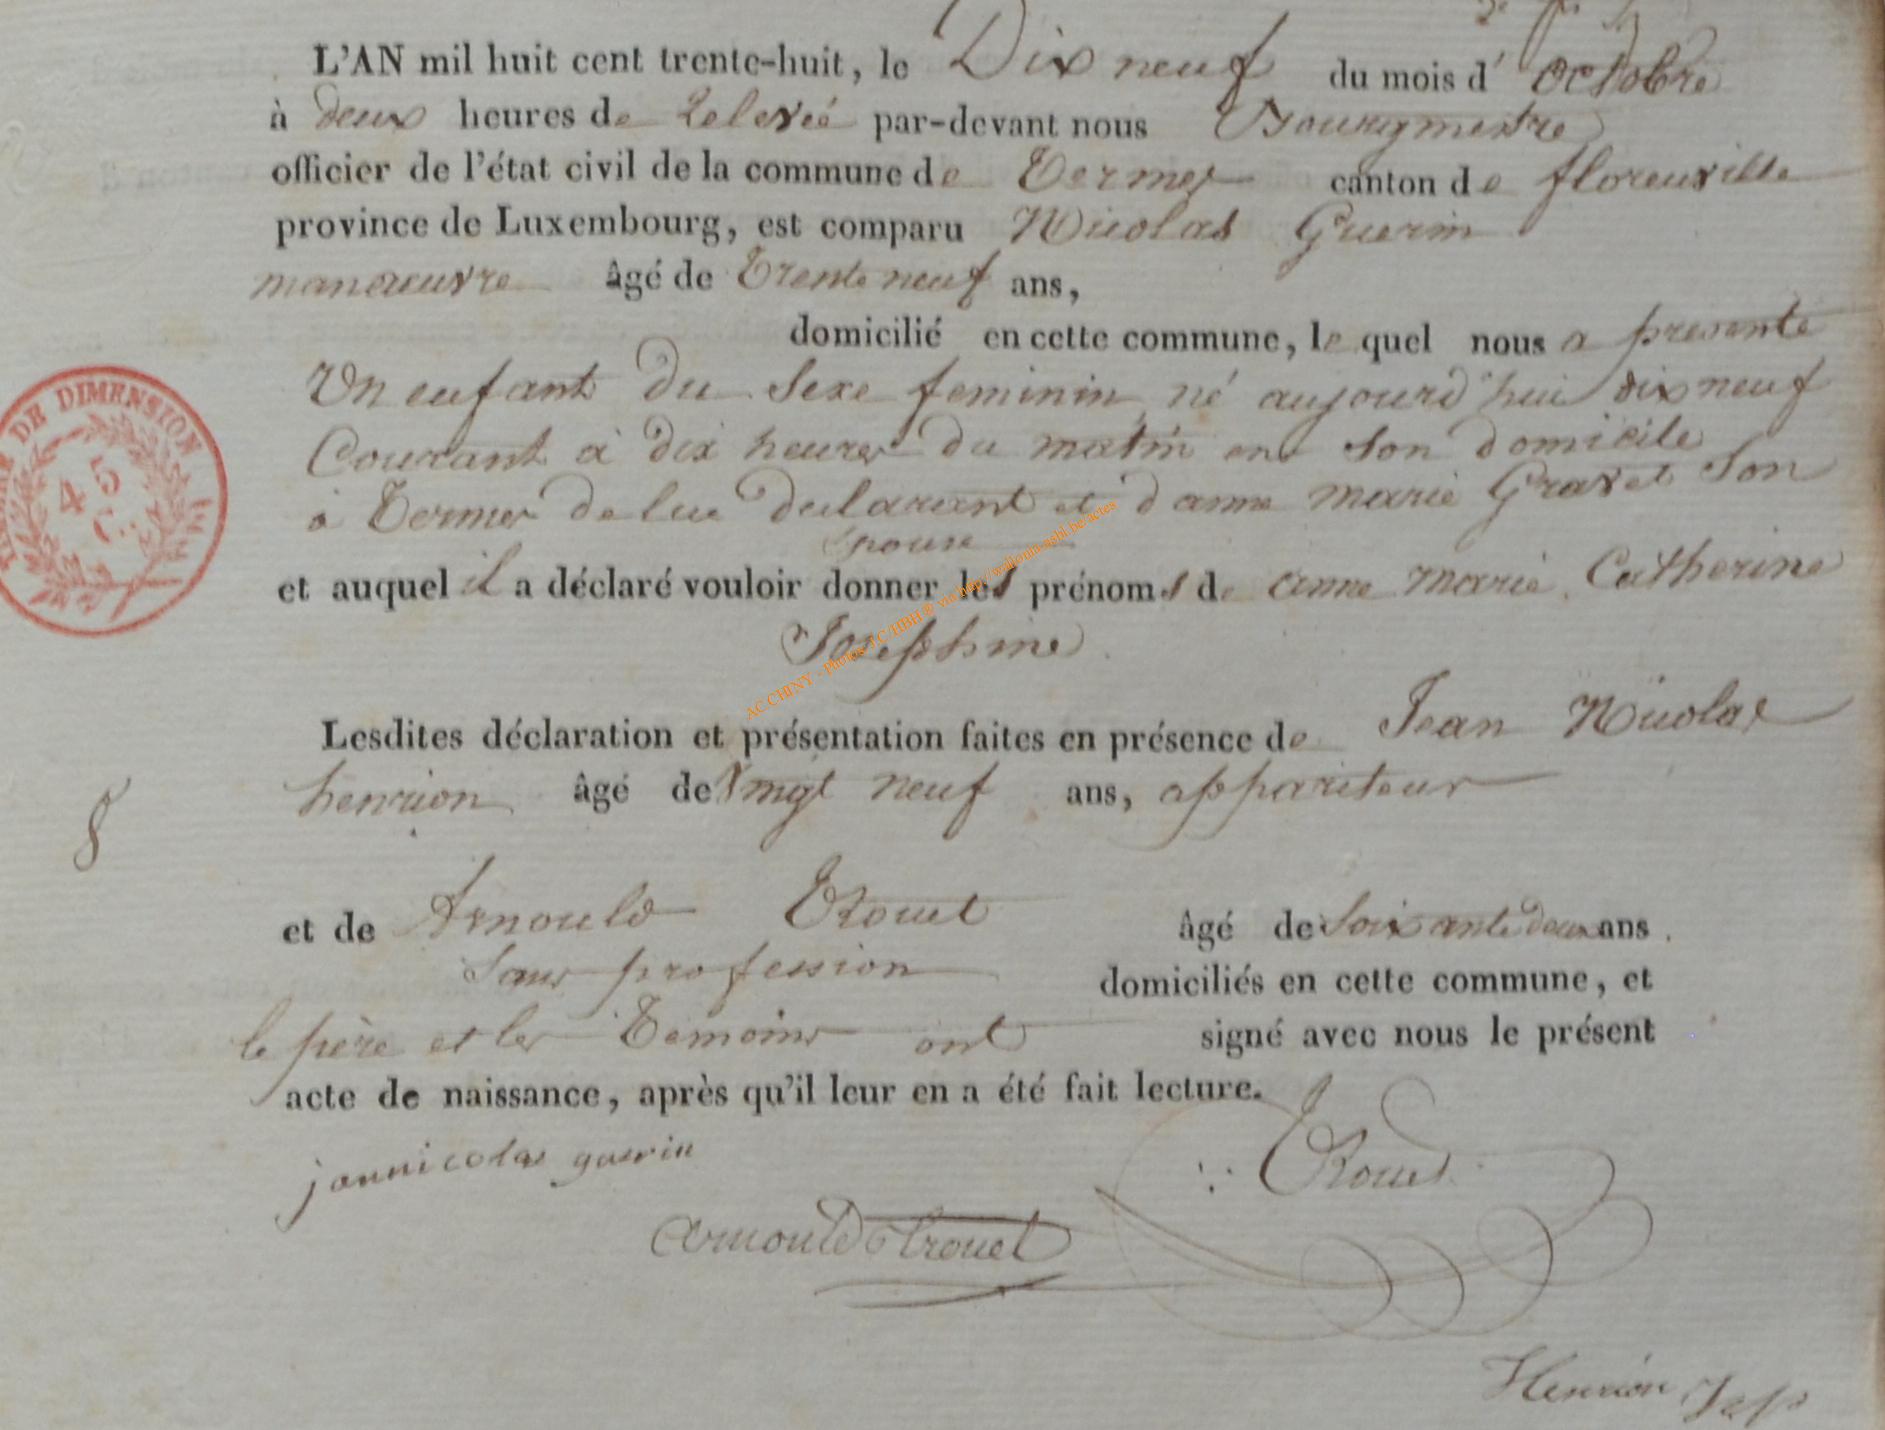 L'AN mil huit cent trente-huit, le Dix neuf du mois d' octobre
à deux heures de Relevée par-devant nous Bourgmestre
officier de l'état civil de la commune de Termes canton de florenville
province de Luxembourg, est comparu Nicolas Guerin
manoeuvre âgé de Trente neuf ans,
domicilié en cette commune, le quel nous a presenté
Un enfant du Sexe feminin né aujourd'hui dix neuf
Courant à dix heures du matin en Son domicile
à Termes de lui declarant et d'anne marie Gravet Son
Epouse
et auquel il a déclaré vouloir donner les prénoms de anne marie Catherine
Josephine
Lesdites déclaration et présentation faites en présence de Jean Nicolas
henrion âgé de Vingt neuf ans, appariteur
et de Arnould Trouet âgé de Soixante deux ans
Sans profession domiciliés en cette commune, et
le père et les Témoins ont signé avec nous le présent
acte de naissance, après qu'il leur en a été fait lecture.
jannicolas guerin
Trouet
arnould trouet
Henrion
DE DIMENSION
45
C.
AC CHINY - Photos J.C/HBH® via http://wallonia-asbl.be/actes